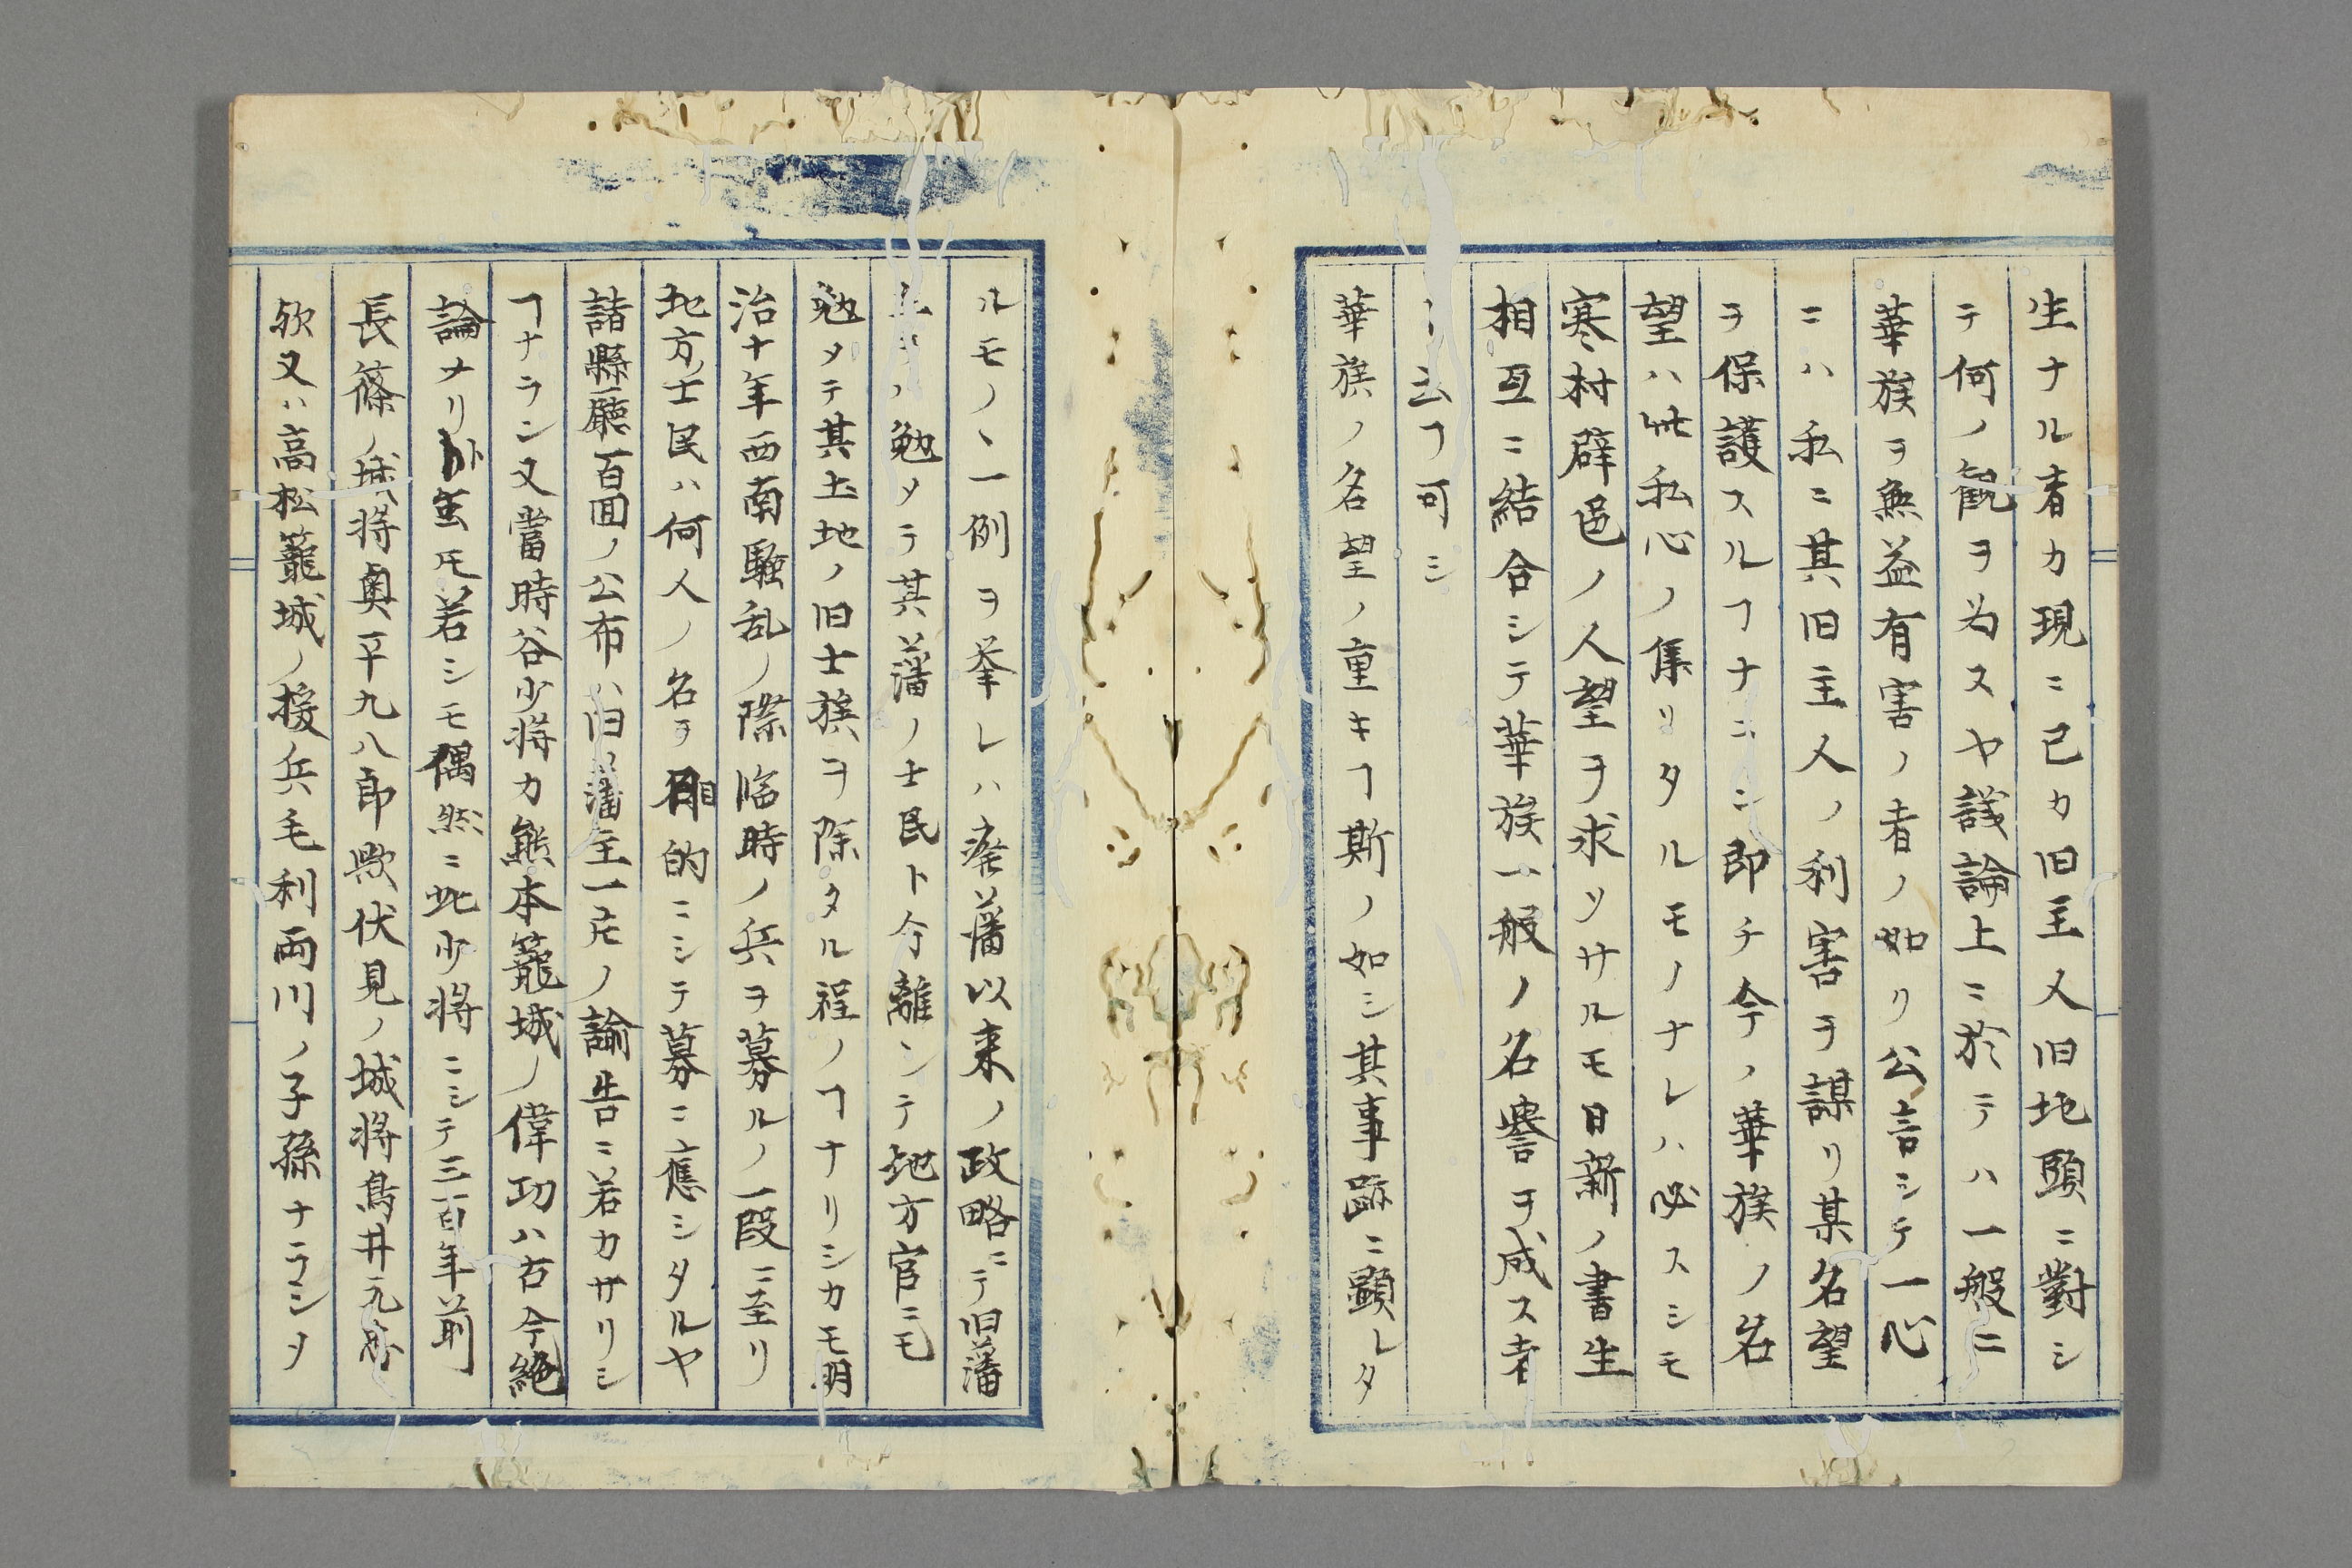 生ナル者カ現ニ己カ旧主人旧地頭ニ對シ
テ何ノ観ヲ為スヤ議論上ニ於テハ一般ニ
華族ヲ無益有害ノ者ノ如リ公言シテ一心
ニハ私ニ其旧主人ノ利害ヲ謀リ某名望
ヲ保護スルヿナニシ即チ今ノ華族ノ名
望ハ此私心ノ集リタルモノナレハ必スシモ
寒村辟邑ノ人望ヲ求ツサルモ日新ノ書生
相互ニ結合シテ華族一般ノ名譽ヲ成ス者
ト云フヿ可シ
華族ノ名望ノ重キヿ斯ノ如シ其事跡ニ顕レタ
ルモノヽ一例ヲ挙レハ廃藩以来ノ政略ニテ旧藩
ハ勉メテ其藩ノ士民ト今離シテ地方官ニモ
勉メテ其土地ノ旧士族ヲ除タル程ノヿナリシカモ明
治十年西南騒乱ノ際臨時ノ兵ヲ募ルノ一段ニ至リ
地方士民ハ何人ノ名ヲ目的ニシテ募ニ應シタルヤ
諸縣廳百回ノ公布ハ旧藩主一片ノ諭告ニ若カサリシ
ヿナラン又當時谷少将カ熊本籠城ノ偉功ハ古今絶
論ナリ虽𪜈若シモ偶然ニ此少将ニシテ三百年前
長篠ノ城将奥平九八郎歟伏見ノ城将鳥井元忠
歟又ハ高松籠城ノ援兵毛利両川ノ子孫ナラシメ